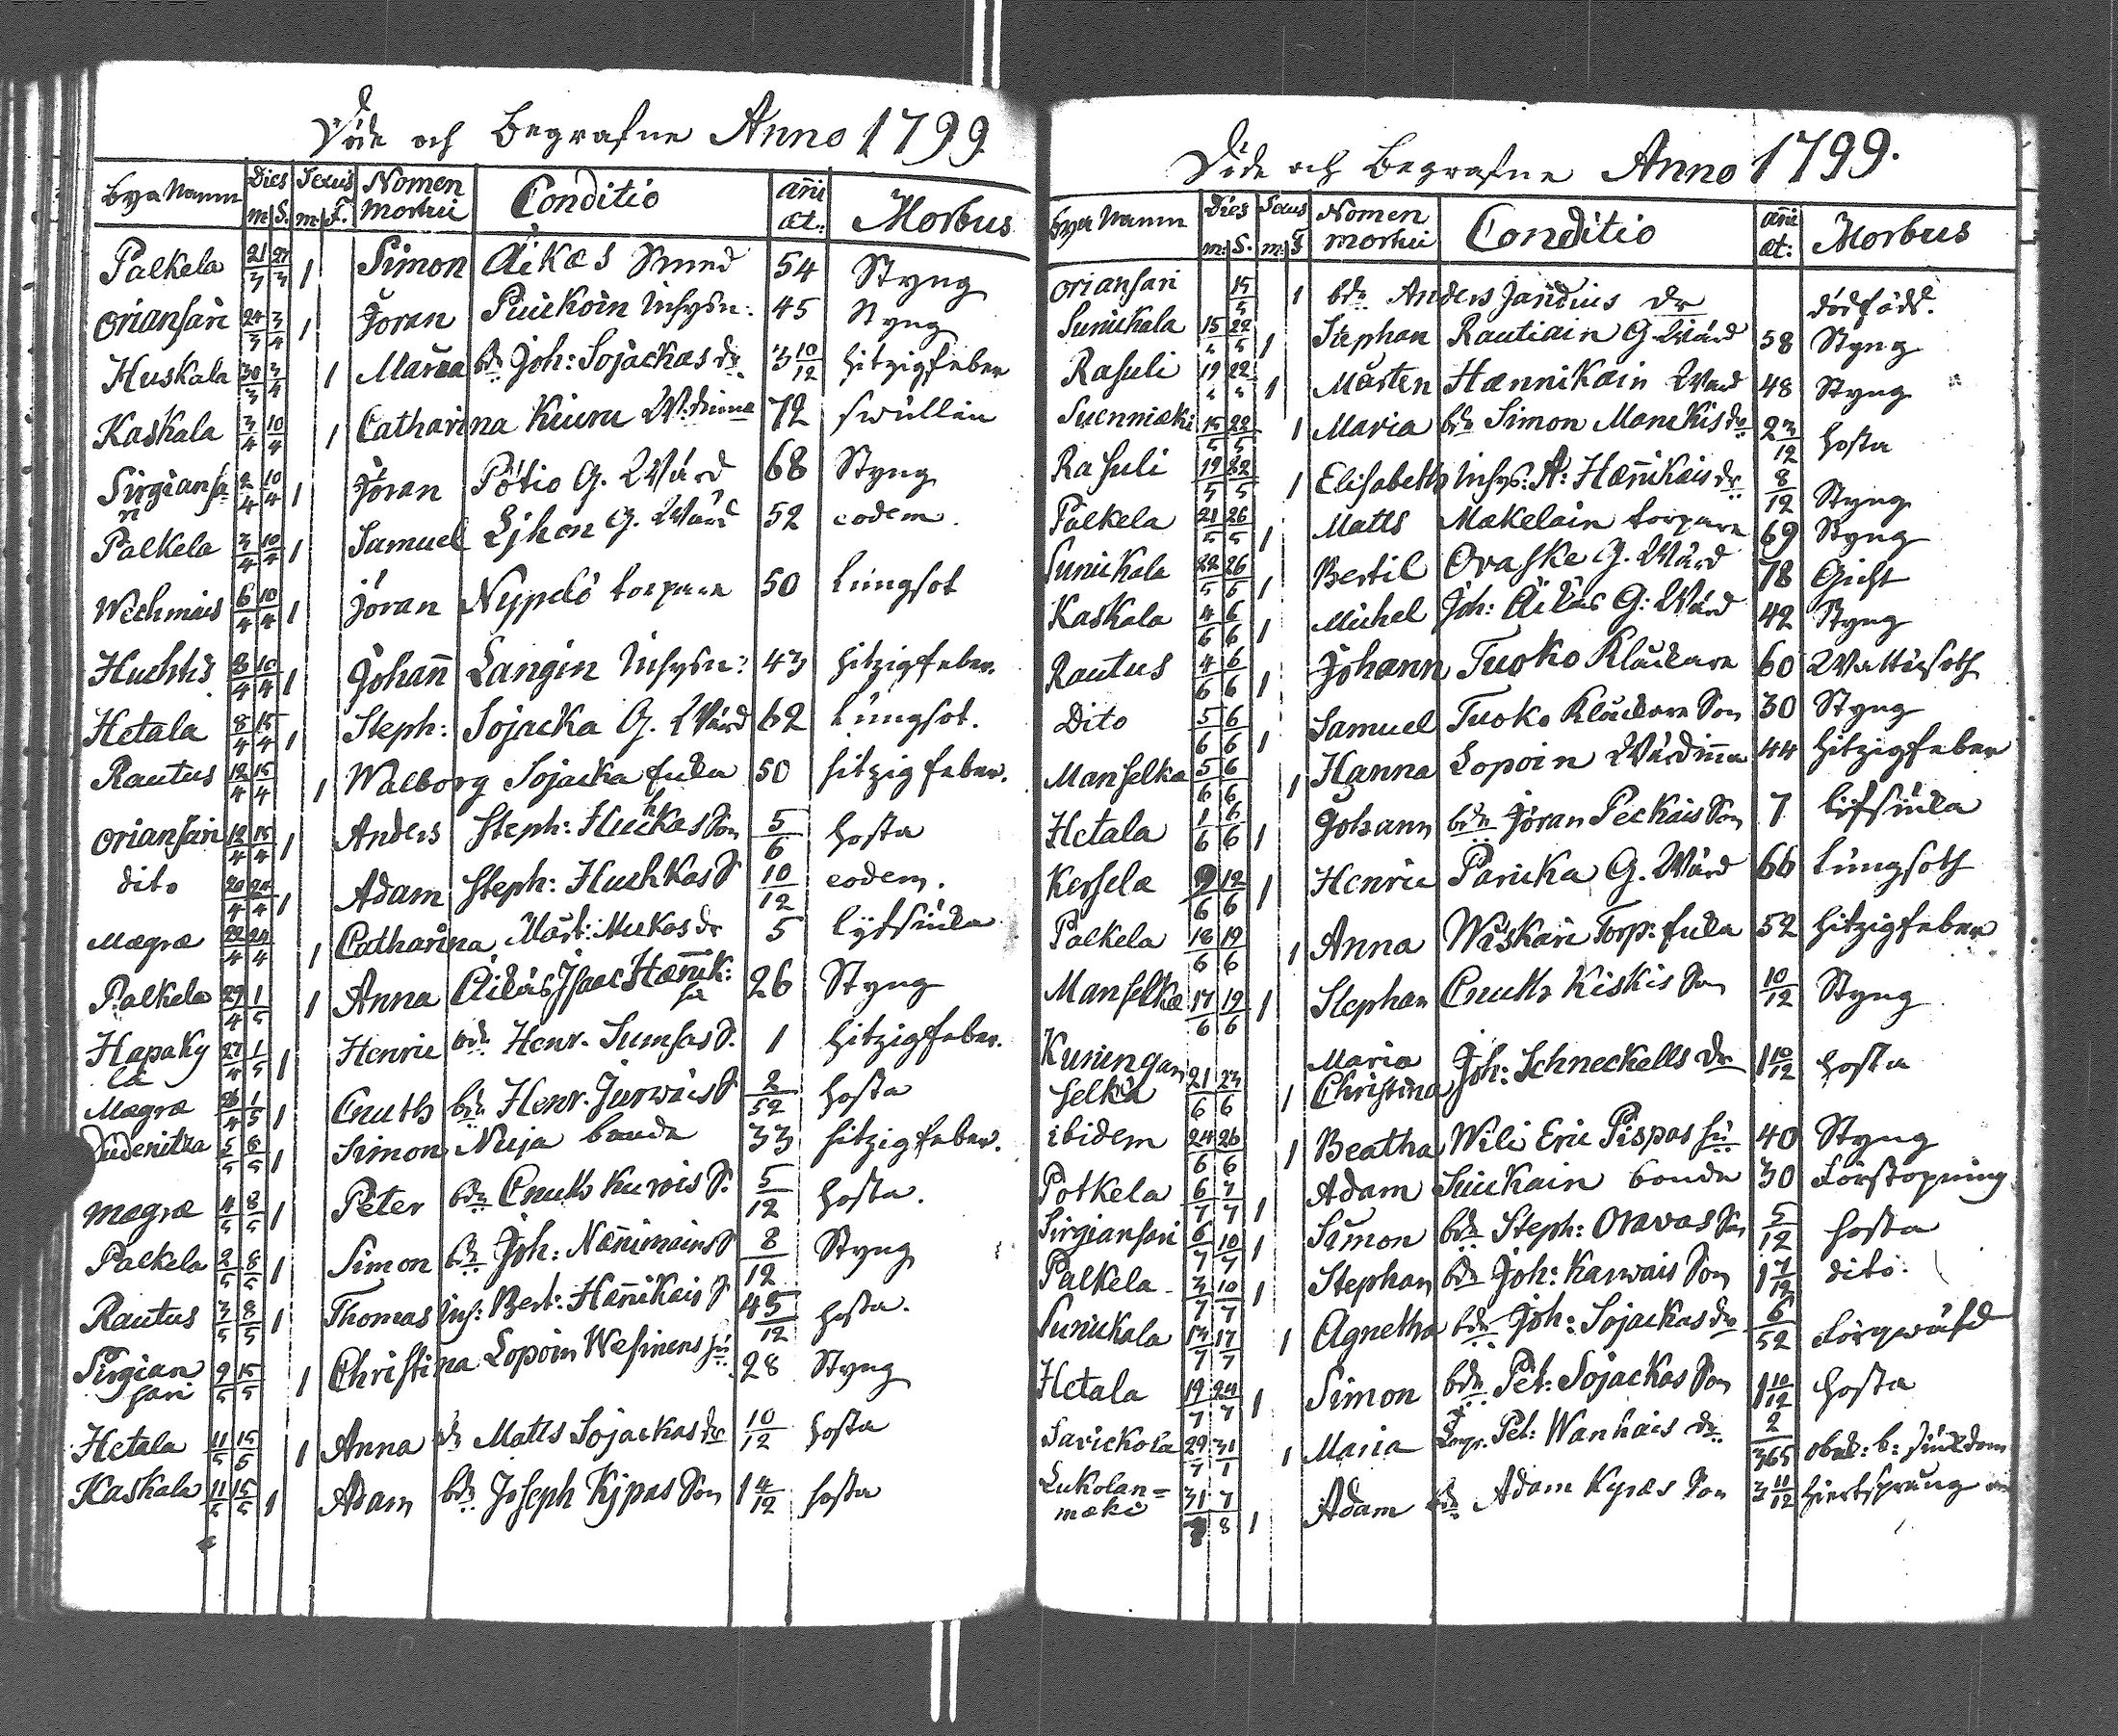 Döde och Begrafne Anno 1799
Bya Namn Dies m S. Sexus m. F. Nomen mortui Conditio añi æt: Morbus
Palkela 21/3 27/3 1 Simon Äikæs Smed 54 Styng
Oriansari 24/3 3/4 1 Jöran Puickoin Inhysn: 45 Styng
Huskala 30/3 3/4 1 Maria bd: Joh: Sojackas dr. 3 10/12 hitzigfeber
Kaskala 3/4 10/4 1 Catharina Kiuru Wärdinna 72 swullen
Sirgiansari 2/4 10/4 1 Jöran Pötio G. Wärd 68 Styng
Palkela 3/4 10/4 1 Samuel Ljhon G. Wärd 52 eodem.
Wechmais 6/4 10/4 1 Jöran Nypelö torpare 50 Lungsot
Huhtis 8/4 10/4 1 Johañ Langin Inhysn: 43 hitzigfeber.
Hetala 8/4 15/4 1 Steph: Sojacka G. Wärd 62 Lungsot.
Rautus 12/4 15/4 1 Walborg Sojacka Enka 50 hitzigfeber.
Oriansari 12/4 15/4 1 Anders Steph: Huchkas Son 5/6 hosta
dito 20/4 24/4 1 Adam Steph: Huchkas S 10/12 eodem.
Mægræ 22/4 24/4 1 Catharina Mårt: Muckas dr 5 lifsiuka
Palkela 29/4 1/5 1 Anna Äikäs Isaac Hæñik: hu 26 Styng
Hapakylä 27/4 1/5 1 Henric bdn Henr. Sumsas S. 1 hitzigfeber.
Mægræ 26/4 1/5 1 Cnuth bdn Henr. Jurwais S 2/52 hosta
Dudenitza 5/5 8/5 1 Simon Nuija bonde 33 hitzigfeber.
Mægræ 4/5 8/5 1 Peter bdn Cnuth Kurvis S. 5/12 hosta.
Palkela 2/5 8/5 1 Simon bdn Joh: Næñimains S 8/12 Styng
Rautus 3/5 8/5 1 Thomas Inh: Bert: Hæñikais S 4 5/12 hosta.
Sirgiansari 9/5 15/5 1 Christina Lopoin Wesinens hu 28 Styng
Hetala 11/5 15/5 1 Anna bd Matts Sojackas dr 10/12 hosta
Kaskala 11/5 15/5 1 Adam bdn Joseph Kjpas Son 1 4/12 hosta
Döde och Begrafne Anno 1799.
Bya Namn Dies m. S. Sexus m. F Nomen mortui Conditio añi æt: Morbus
Oriansari 15/5 1 bdn Anders Jandius dr dödfödd.
Sunickala 15/5 22/5 1 Staphan Rautiain G. Wärd 58 Styng
Rasuli 19/5 22/5 1 Mårten Hænnikain Wärd 48 Styng
Suenmæki 15/5 22/5 1 Maria bdn Simon Manckis dr 2 3/12 hosta
Rasuli 19/5 22/5 1 Elisabeth Inhys: A: Hæñikais dr 8/12 Styng
Palkela 21/5 26/5 1 Matts Makelain torpare 69 Styng
Sunickala 22/5 26/5 1 Bertil Ovaske G. Wärd 78 Gicht
Kaskala 4/6 6/6 1 Michel Joh: Äikäs G: Wärd 42 Styng
Rautus 4/6 6/6 1 Johann Tuoko Klåckare 60 Wattusoth
Dito 5/6 6/6 1 Samuel Tuoko Klåckare Son 30 Styng
Manselka 5/6 6/6 1 Hanna Lopoin Wärdiña 44 hitzigfeber
Hetala 1/6 6/6 1 Johann bdn Jöran Peckais Son 7 lifsiuka
Kersela 9/6 12/6 1 Henric Paricka G. Wärd 66 Lungsoth
Palkela 18/6 19/6 1 Anna Wäskäri Torp: Enka 52 hitzigfeber
Manselkæ 17/6 19/6 1 Stephan Cnuth Kiskis Son 10/12 Styng
Kuningan selkä 21/6 23/6 1 Maria Christina Joh: Schneckells dr 1 10/12 hosta
ibidem 24/6 26/6 1 Beatha Wili Eric Pispas hu 40 Styng
Potkela 6/7 7/7 1 Adam Suickain bonde 30 Förstopning
Sirgiansari 6/7 10/7 1 Simon bdn Steph: Oravas Son 5/12 hosta
Palkela 3/7 10/7 1 Stephan bdn Joh: Karwais Son 1 7/12 dito.
Sunickala 13/7 17/7 1 Agnetha bdn Joh: Sojackas dr 6/52 Torgwäsd
Hetala 19/7 24/7 1 Simon bdn Pet: Sojackas Son 1 10/12 hosta
Savickola 29/7 31/7 1 Maria Torp. Pet: Wanhais dr. 2/365 obek: b: siukdom
Lukolan=mæki 31/7 7/8 1 Adam bdn Adam Kypæs Son 3 11/12 hiertsprung